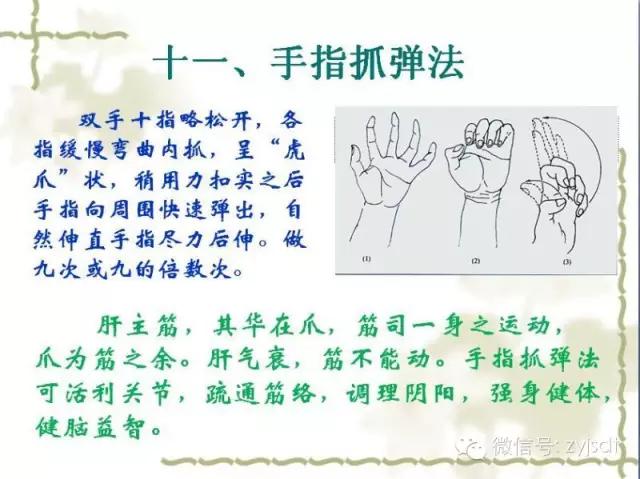 十一、手指抓弹法
双手十指略松开，各
指缓慢弯曲内抓，呈“虎
爪”状，稍用力扣实之后
手指向周围快速弹出，自
然伸直手指尽力后伸。做
九次或九的倍数次。
(1) (2) (3)
肝主筋，其华在爪，筋司一身之运动，
爪为筋之余。肝气衰，筋不能动。手指抓弹法
可活利关节，疏通筋络，调理阴阳，强身健体，
健脑益智。
微信号: zyjsdt